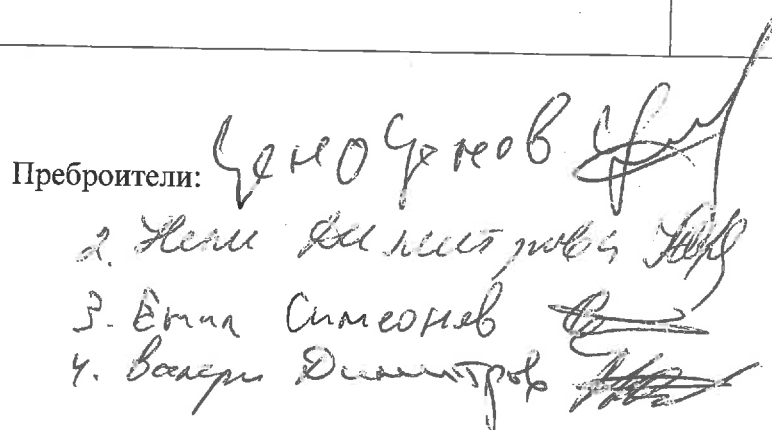 Преброители: Цено Ценов
2. Нели Димитрова
3. Емил Симеонов
4. Валери Димитров